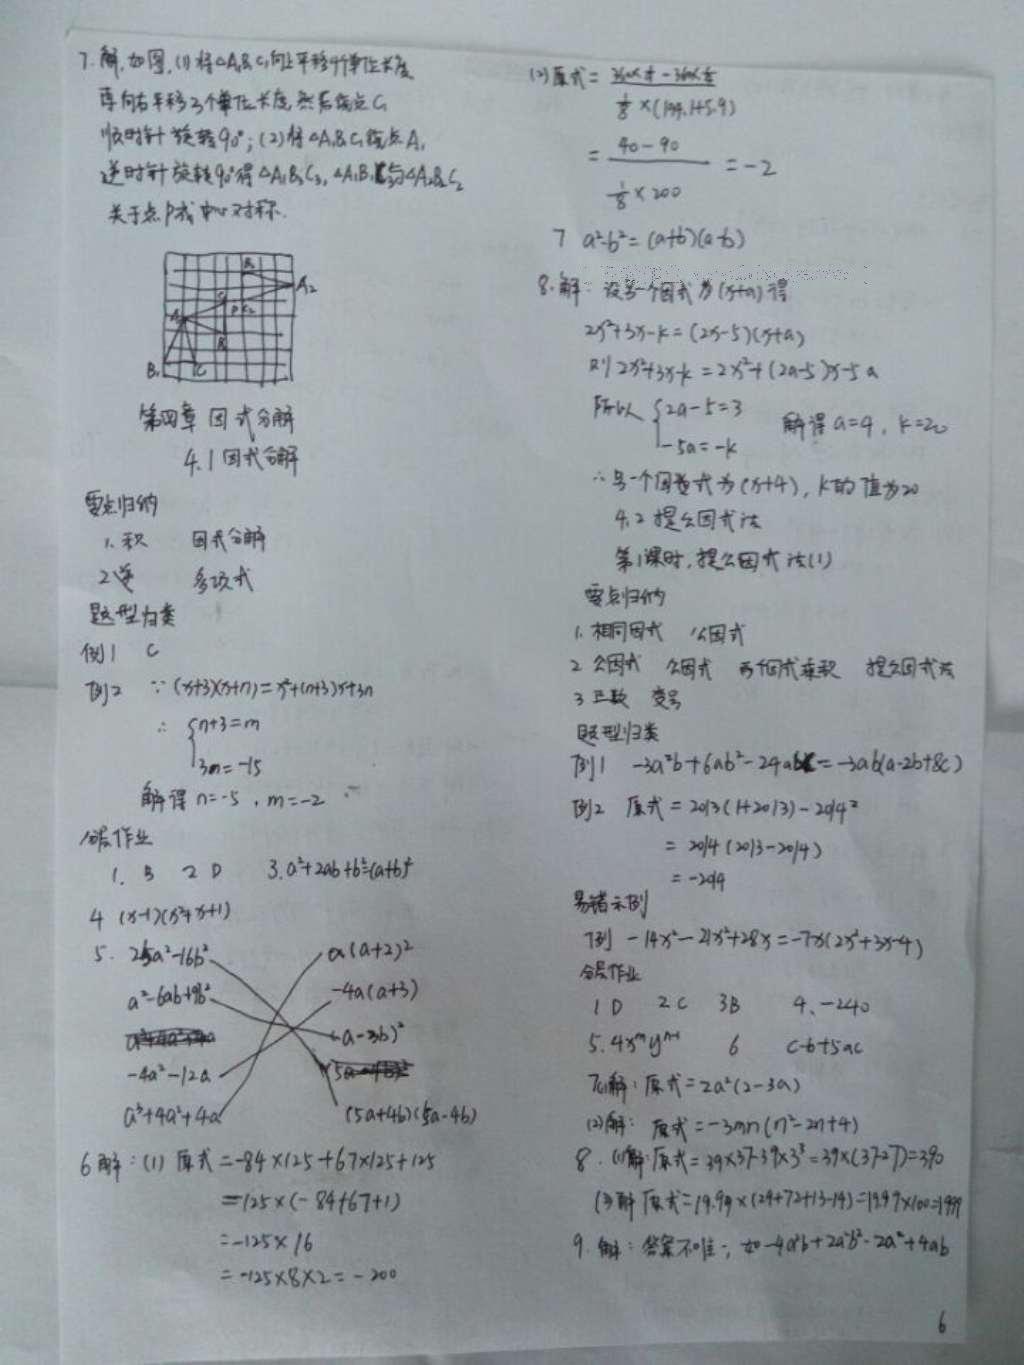 7.解.如图,(1)将△A₁B₁C₁向上平移4个单位长度,
再向右平移3个单位长度,然后绕点C₁
顺时针旋转90°;(2)将△A₁B₁C₁绕点A₁
逆时针旋转90°得△A₁B₃C₃,△A₁B₃C₃与△A₂B₂C₂
关于点P成中心对称.
A₂
P
A₁
B₁
第四章 因式分解
4.1因式分解
要点归纳
1.积 因式分解
2逆 多项式
题型归类
例1 C
例2 ∵(x+3)(x+n)=x²+(n+3)x+3n
∴ {n+3=m
3n=-15
解得n=-5,m=-2
分层作业
1.B 2 D 3.a²+2ab+b²=(a+b)²
4 (x-1)(x²+x+1)
5. 25a²-16b² a(a+2)²
a²-6ab+9b² -4a(a+3)
(a-3b)²
-4a²-12a
a³+4a²+4a (5a+4b)(5a-4b)
6解:(1)原式=-84×125+67×125+125
=125×(-84+67+1)
=-125×16
=-125×8×2=-200
(2)原式=
⅛×(194.1+5.9)
= 40-90 =-2
⅛×200
7 a²-b²=(a+b)(a-b)
8.解:设另一个因式为(x+a)得
2x²+3x-k=(2x-5)(x+a)
则2x²+3x-k=2x²+(2a-5)x-5a
所以 {2a-5=3 解得a=4,k=20
-5a=-k
∴另一个因式为(x+4),k的值为20
4.2提公因式法
第1课时,提公因式法(1)
要点归纳
1.相同因式 公因式
2 公因式 公因式 两个因式乘积 提公因式法
3 正数 变号
题型归类
例1 -3a²b+6ab²-24abc=-3ab(a-2b+8c)
例2 原式=2013(1+2013)-2014²
=2014(2013-2014)
=-2014
易错示例
例 -14x³-21x²+28x=-7x(2x²+3x-4)
分层作业
1D 2C 3B 4.-240
5.4xᵐyⁿ⁻¹ 6 c-b+5ac
7(1)解:原式=2a²(2-3a)
(2)解:原式=-3mn(n²-2n+4)
8.(1)解:原式=39×37-39×3³=39×(37-27)=390
(2)解原式=19.99×(29+72+13-14)=19.99×100=1999
9.解:答案不唯一,如-4a²b+2a²b²-2a²+4ab
6